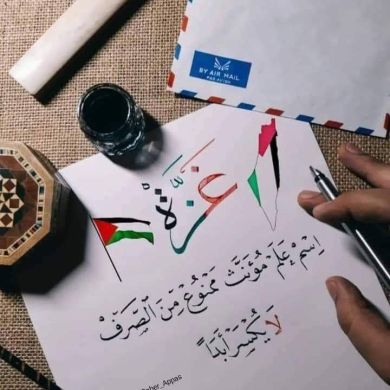 BY AIR MAIL
PAR AVION
غزّة
اِسْم عَلَم مُؤَنَّث مَمْنُوعٌ مِنَ الصَّرَفْ
لَا يُكْسَرَ أَبَدًا